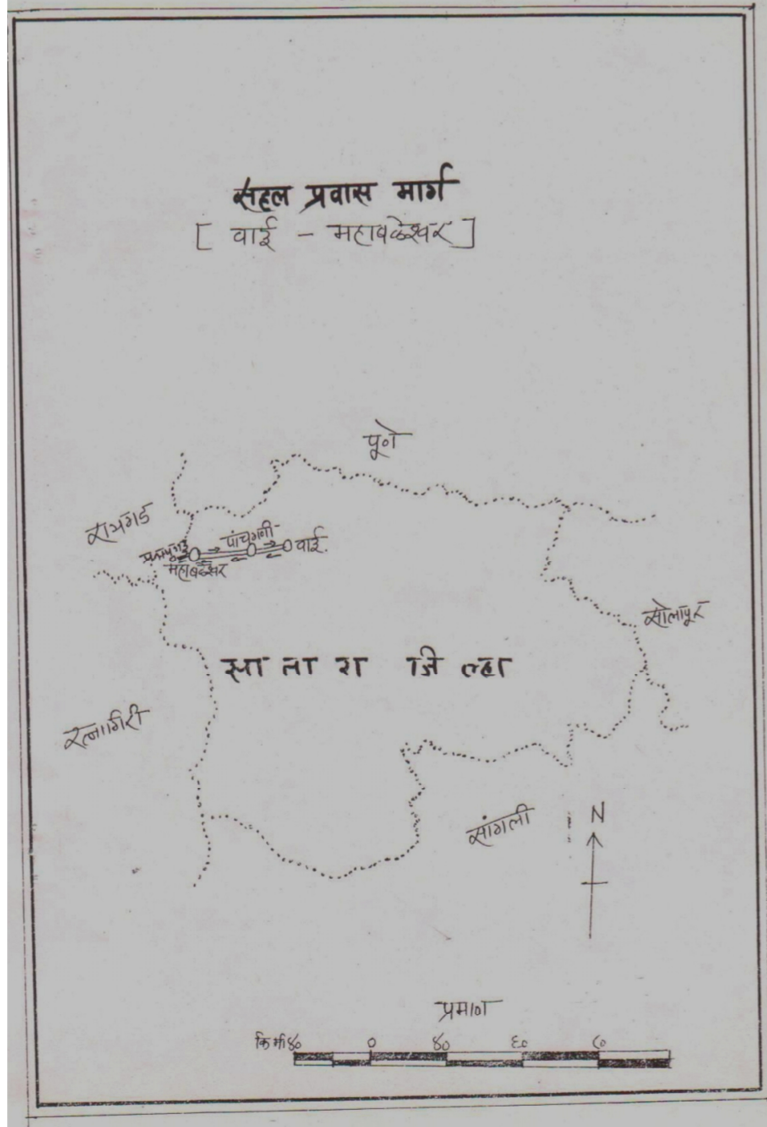 सहल प्रवास मार्ग
[ वाई - महाबळेश्वर ]
पूणे
रायगड
प्रतापगड
पांचगणी
वाई.
महाबळेश्वर
सोलापूर
सा ता रा जि ल्हा
रत्नागिरी
सांगली
N
प्रमाण
कि मी ४० ० ४० ६० ८०